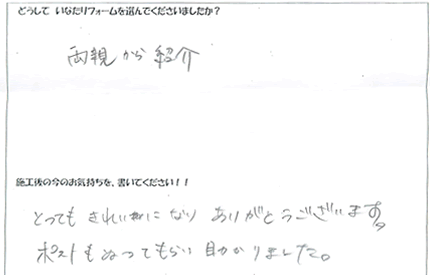 どうして いなだリフォームを選んでくださいましたか？
両親から紹介
施工後の今のお気持ちを、書いてください！！
とってもきれいになり ありがとうございます。
ポストもぬってもらい助かりました。